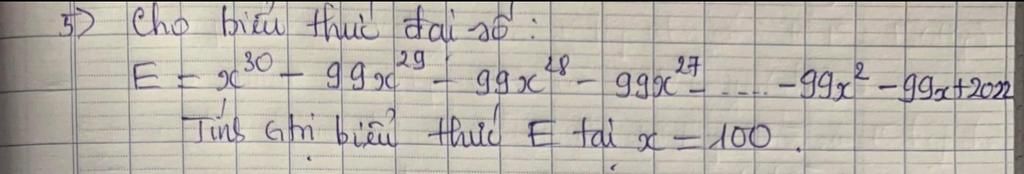 5) Cho biểu thức đại số :
E = x^30 - 99x^29 - 99x^28 - 99x^27 - .... - 99x^2 - 99x + 2022
Tính Gtri biểu thức E tại x = 100 .